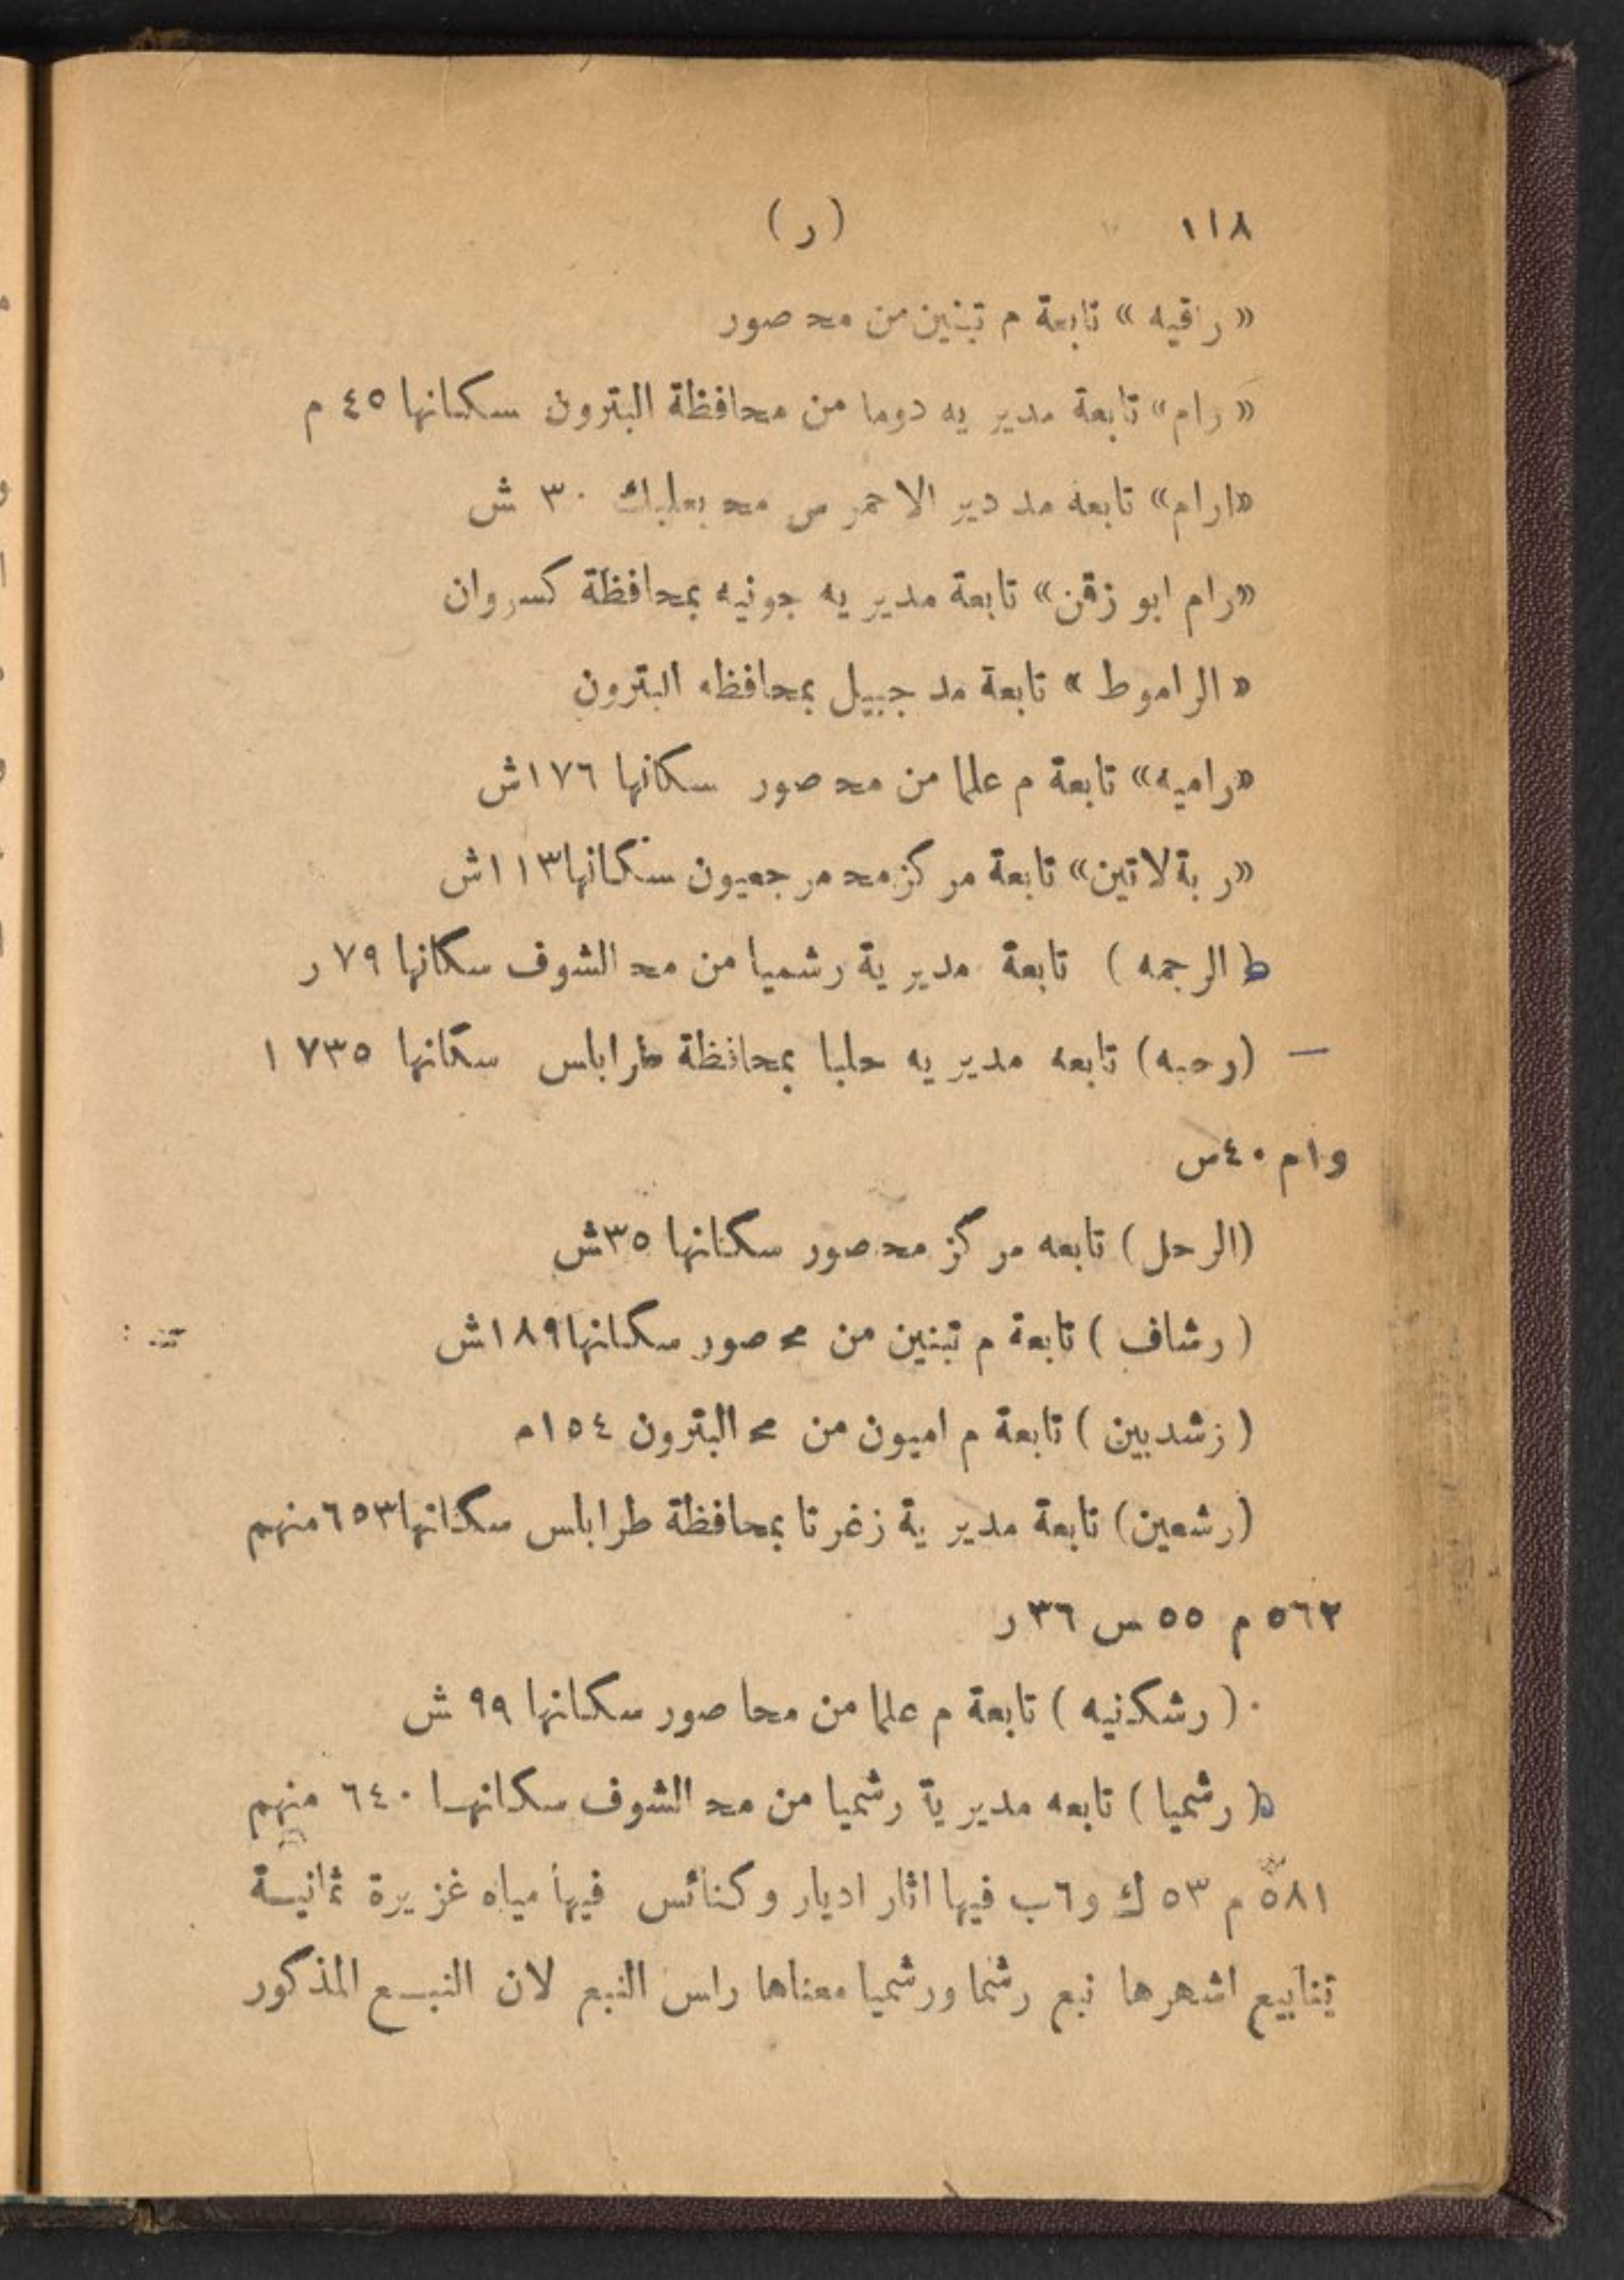 ١١٨ (ر)
«راقيه» تابعة م تبنين من محـ صور
«رام» تابعة مديريه دوما من محافظة البترون سكانها ٤٥ م
«ارام» تابعة مد دير الاحمر من محـ بعلبك ٣٠ ش
«رام ابو زقن» تابعة مديريه جونيه بمحافظة كسروان
«الراموط» تابعة مد جبيل بمحافظه البترون
«راميه» تابعة م علما من محـ صور سكانها ١٧٦ش
«ربةلاتين» تابعة مركز محـ مرجعيون سكانها ١١٣ش
(الرجمه) تابعة مديرية رشميا من محـ الشوف سكانها ٧٩ ر
— (رحبه) تابعه مديريه حلبا بمحافظة طرابلس سكانها ١٧٣٥
و١م ٤٠س
(الرحل) تابعه مركز محـ صور سكانها ٣٥ش
(رشاف) تابعة م تبنين من محـ صور سكانها ١٨٩ش
(زشدبين) تابعة م اميون من محـ البترون ١٥٤م
(رشعين) تابعة مديرية زغرتا بمحافظة طرابلس سكانها ٦٥٣ منهم
٥٦٢ م ٥٥ س ٣٦ ر
(رشكنيه) تابعة م علما من محا صور سكانها ٩٩ ش
(رشميا) تابعه مديرية رشميا من محـ الشوف سكانهـا ٦٤٠ منهم
٥٨١ م ٥٣ ك و٦ب فيها اثار اديار وكنائس فيها مياه غزيرة ثمانيـة
ينابيع اشهرها نبع رشما ورشميا معناها راس النبع لان النبـع المذكور